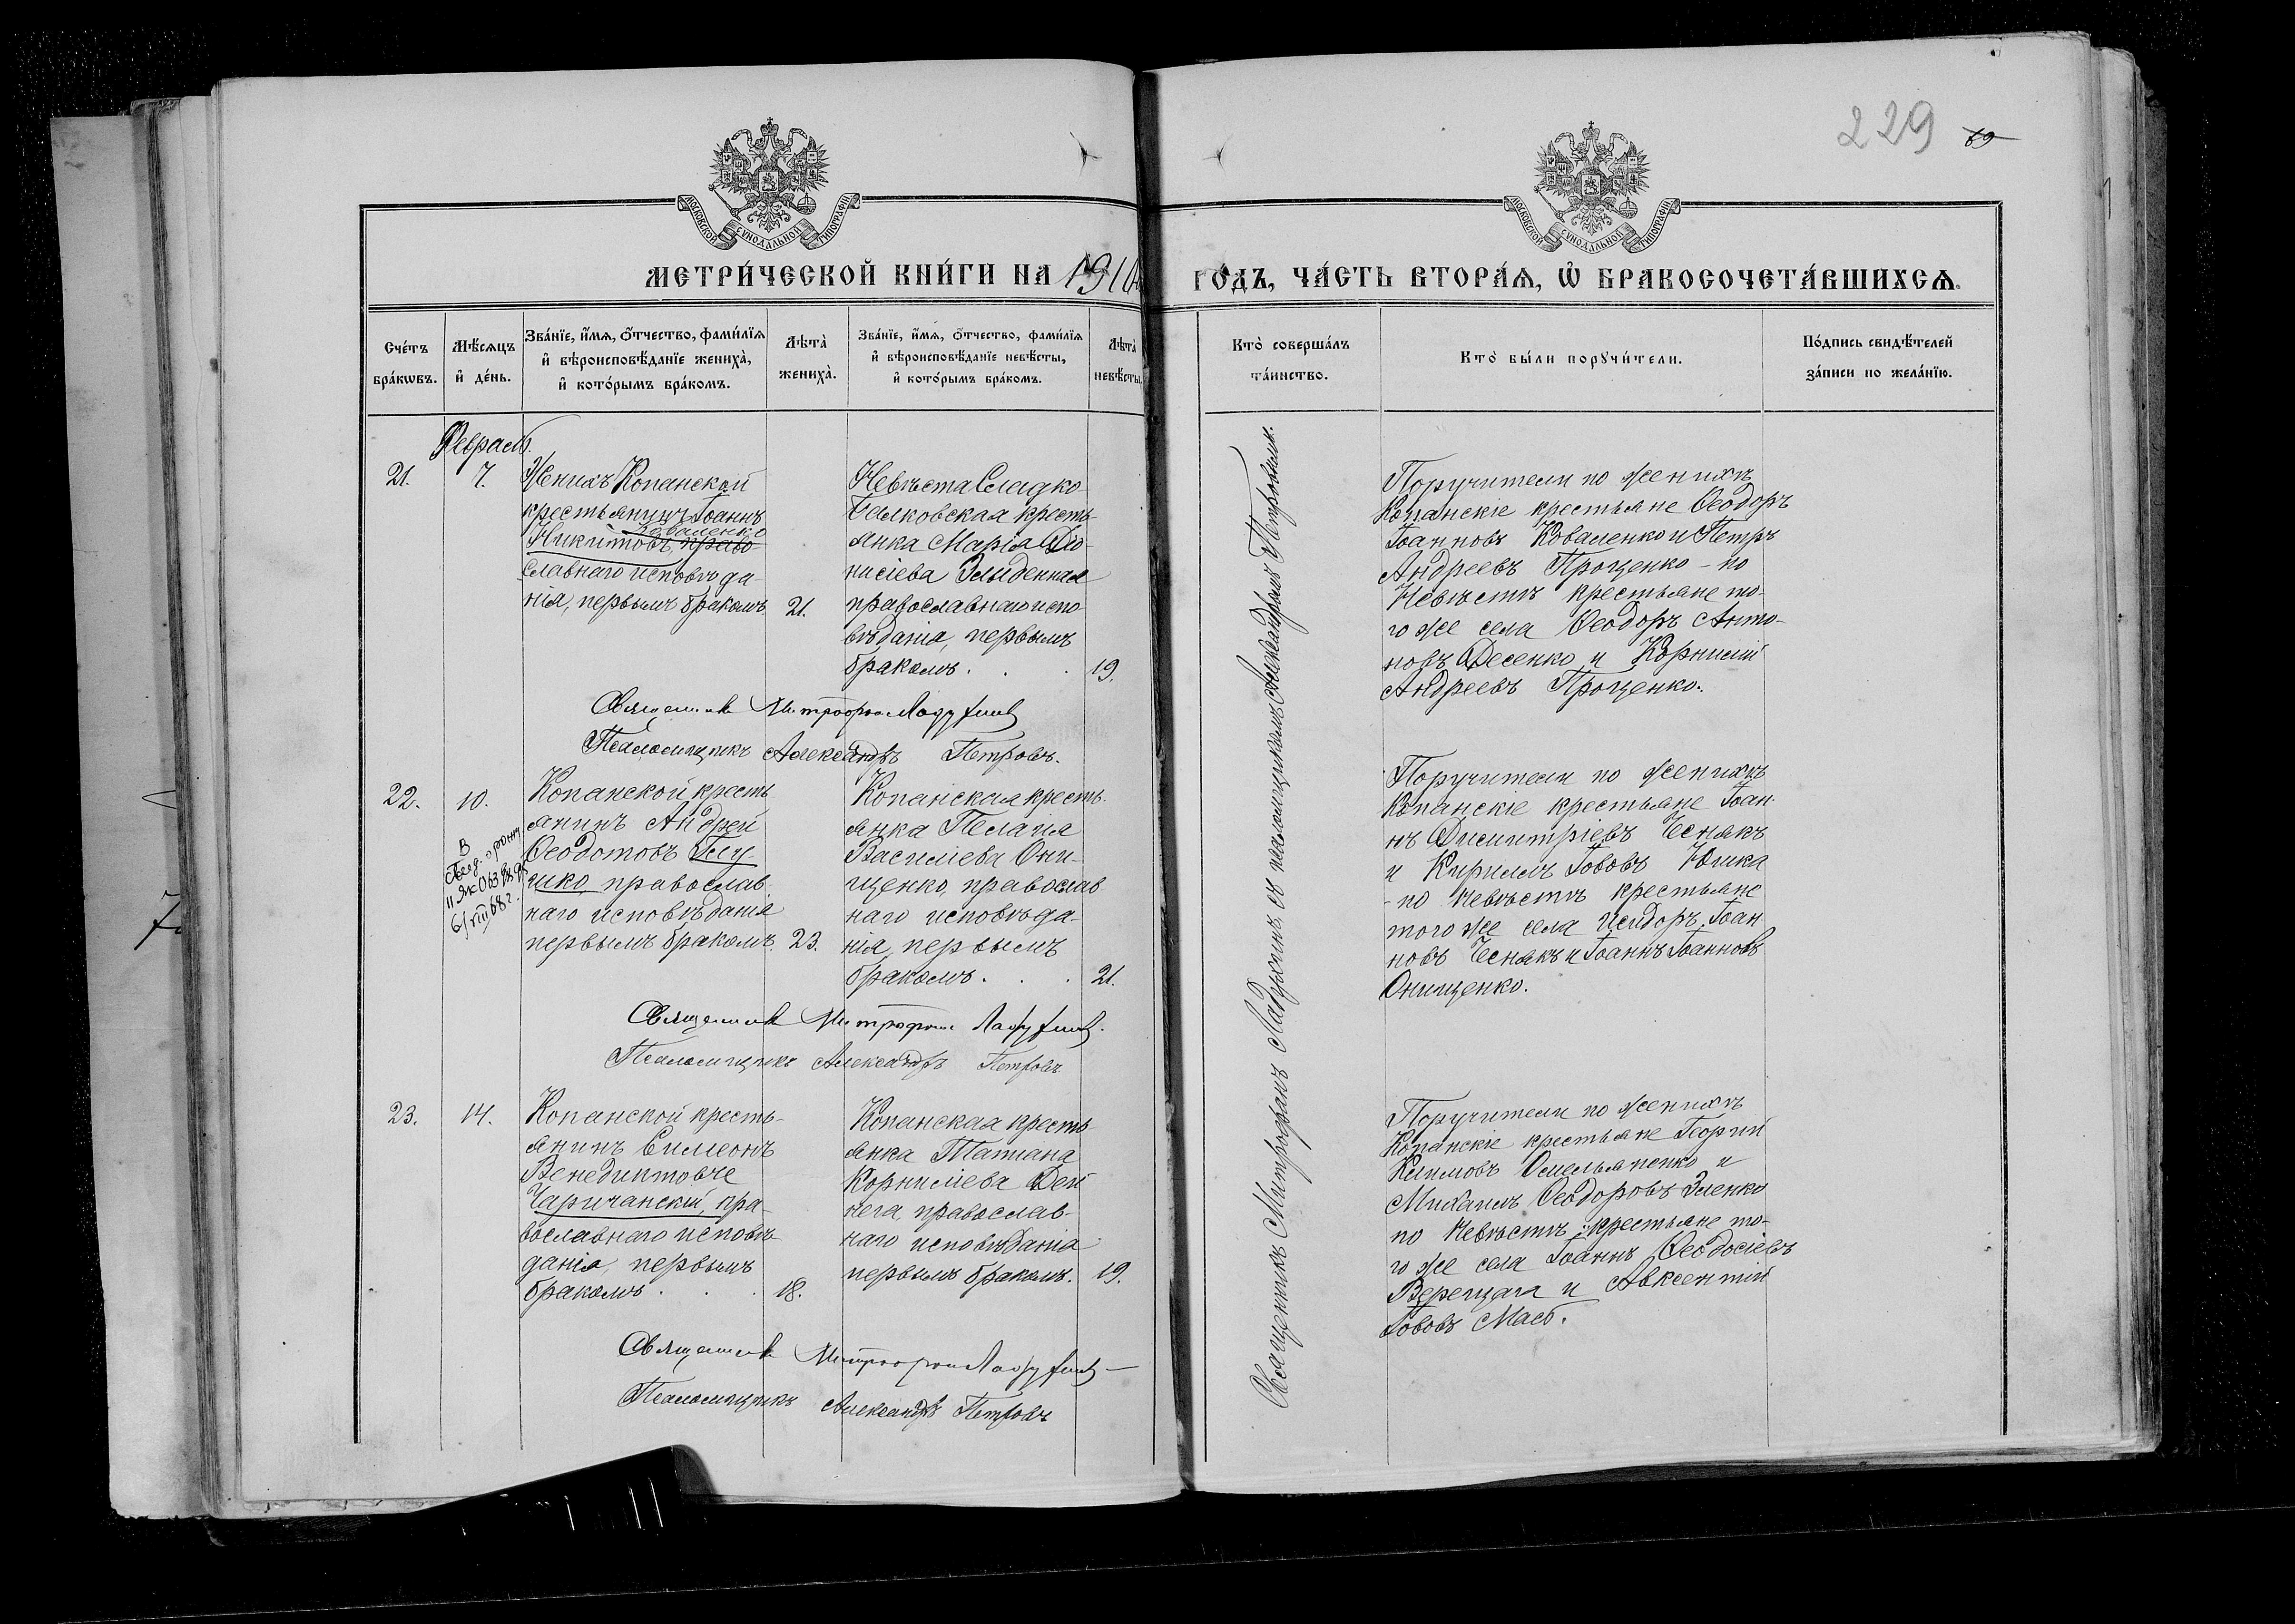 229 69
МОСКОВСКОЙ СѴНОДАЛЬНОЙ ТИПОГРАФІИ
МОСКОВСКОЙ СѴНОДАЛЬНОЙ ТИПОГРАФІИ
МЕТРИ́ЧЕСКОЙ КНИ́ГИ НА 1910
ГО́ДЪ, ЧА́СТЬ ВТОРА́Ѧ, Ѽ БРАКОСОЧЕТА́ВШИХСѦ.
Сче́тъ бра́кѡвъ.
Мѣ́сѧцъ и҆ де́нь.
Зва́нїе, и҆́мѧ, ѻ҆́тчество, фами́лїѧ
и҆ вѣроисповѣ́данїе жениха̀,
и҆ кото́рымъ бра́комъ.
Лѣта̀ жениха̀.
Зва́нїе, и҆́мѧ, ѻ҆́тчество, фами́лїѧ
и҆ вѣроисповѣ́данїе невѣ́сты,
и҆ кото́рымъ бра́комъ.
Лѣта̀ невѣ́сты.
Кто̀ соверша́лъ та́инство.
Кто̀ бы́ли порꙋчи́тели.
По́дпись свидѣ́телей за́писи по жела́нїю.
Февраль.
21.
7.
Женихъ Копанской
крестьянинъ Іоаннъ
Коваленко
Никитовъ, право-
славнаго исповѣда-
нія, первымъ бракомъ
21.
Невѣста Сладко-
балковская кресть-
янка Марія Діо-
нисіева Злыденная
православнаго испо-
вѣданія, первымъ
бракомъ.
19.
Поручители по женихѣ
Копанскіе крестьяне Ѳеодоръ
Іоанновъ Коваленко и Петръ
Андреевъ Проценко - по
Невѣстѣ крестьяне то-
го же села Ѳеодоръ Анто-
новъ Десенко и Корнилій
Андреевъ Проценко.
Священникъ Митрофанъ Ладухинъ
Псаломщикъ Александръ Петровъ.
22.
10.
Копанской кресть
янинъ Андрей
Ѳеодотовъ
православ-
наго исповѣданія
первымъ бракомъ.
23.
Копанская кресть-
янка Пелагія
Василіева Они-
щенко, православ
наго исповѣда-
нія, первымъ
бракомъ.
21.
Поручители по женихѣ
Копанскіе крестьяне Іоан-
нъ Димитріевъ Чеснякъ
и Кириллъ Іововъ Юшка
- по невѣстѣ крестьяне
того же села Исидоръ Іоан-
новъ Чеснякъ и Іоаннъ Іоанновъ
Онищенко.
Священникъ Митрофанъ Ладухинъ.
Псаломщикъ Александръ Петровъ
23.
14.
Копанской кресть-
янинъ Симеонъ
Венедиктовъ
Чаричанскій, пра-
вославнаго исповѣ-
данія, первымъ
бракомъ.
18.
Копанская кресть-
янка Татіана
Корниліева Дей
нега, православ-
наго исповѣданія
первымъ бракомъ.
19.
Поручители по женихѣ
Копанскіе крестьяне Георгій
Климовъ Омельяненко и
Михаилъ Ѳеодоровъ Зленко
по невѣстѣ: крестьяне то-
го же села Іоаннъ Ѳеодосіевъ
Верещага и Авксентій
Іововъ
Священникъ Митрофанъ Ладухинъ
Псаломщикъ Александръ Петровъ
Священникъ Митрофанъ Ладухинъ съ псаломщикомъ Александромъ Петровымъ.